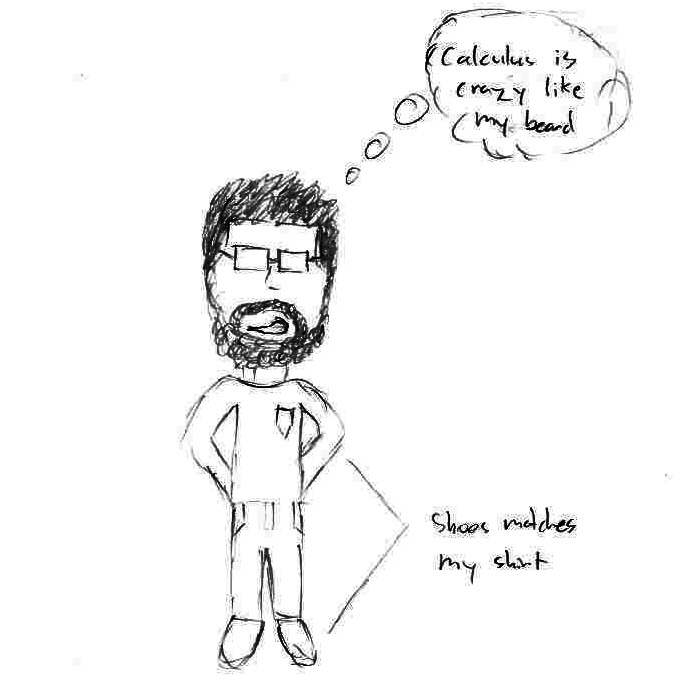 Calculus is
crazy like
my beard
Shoes matches
my shirt